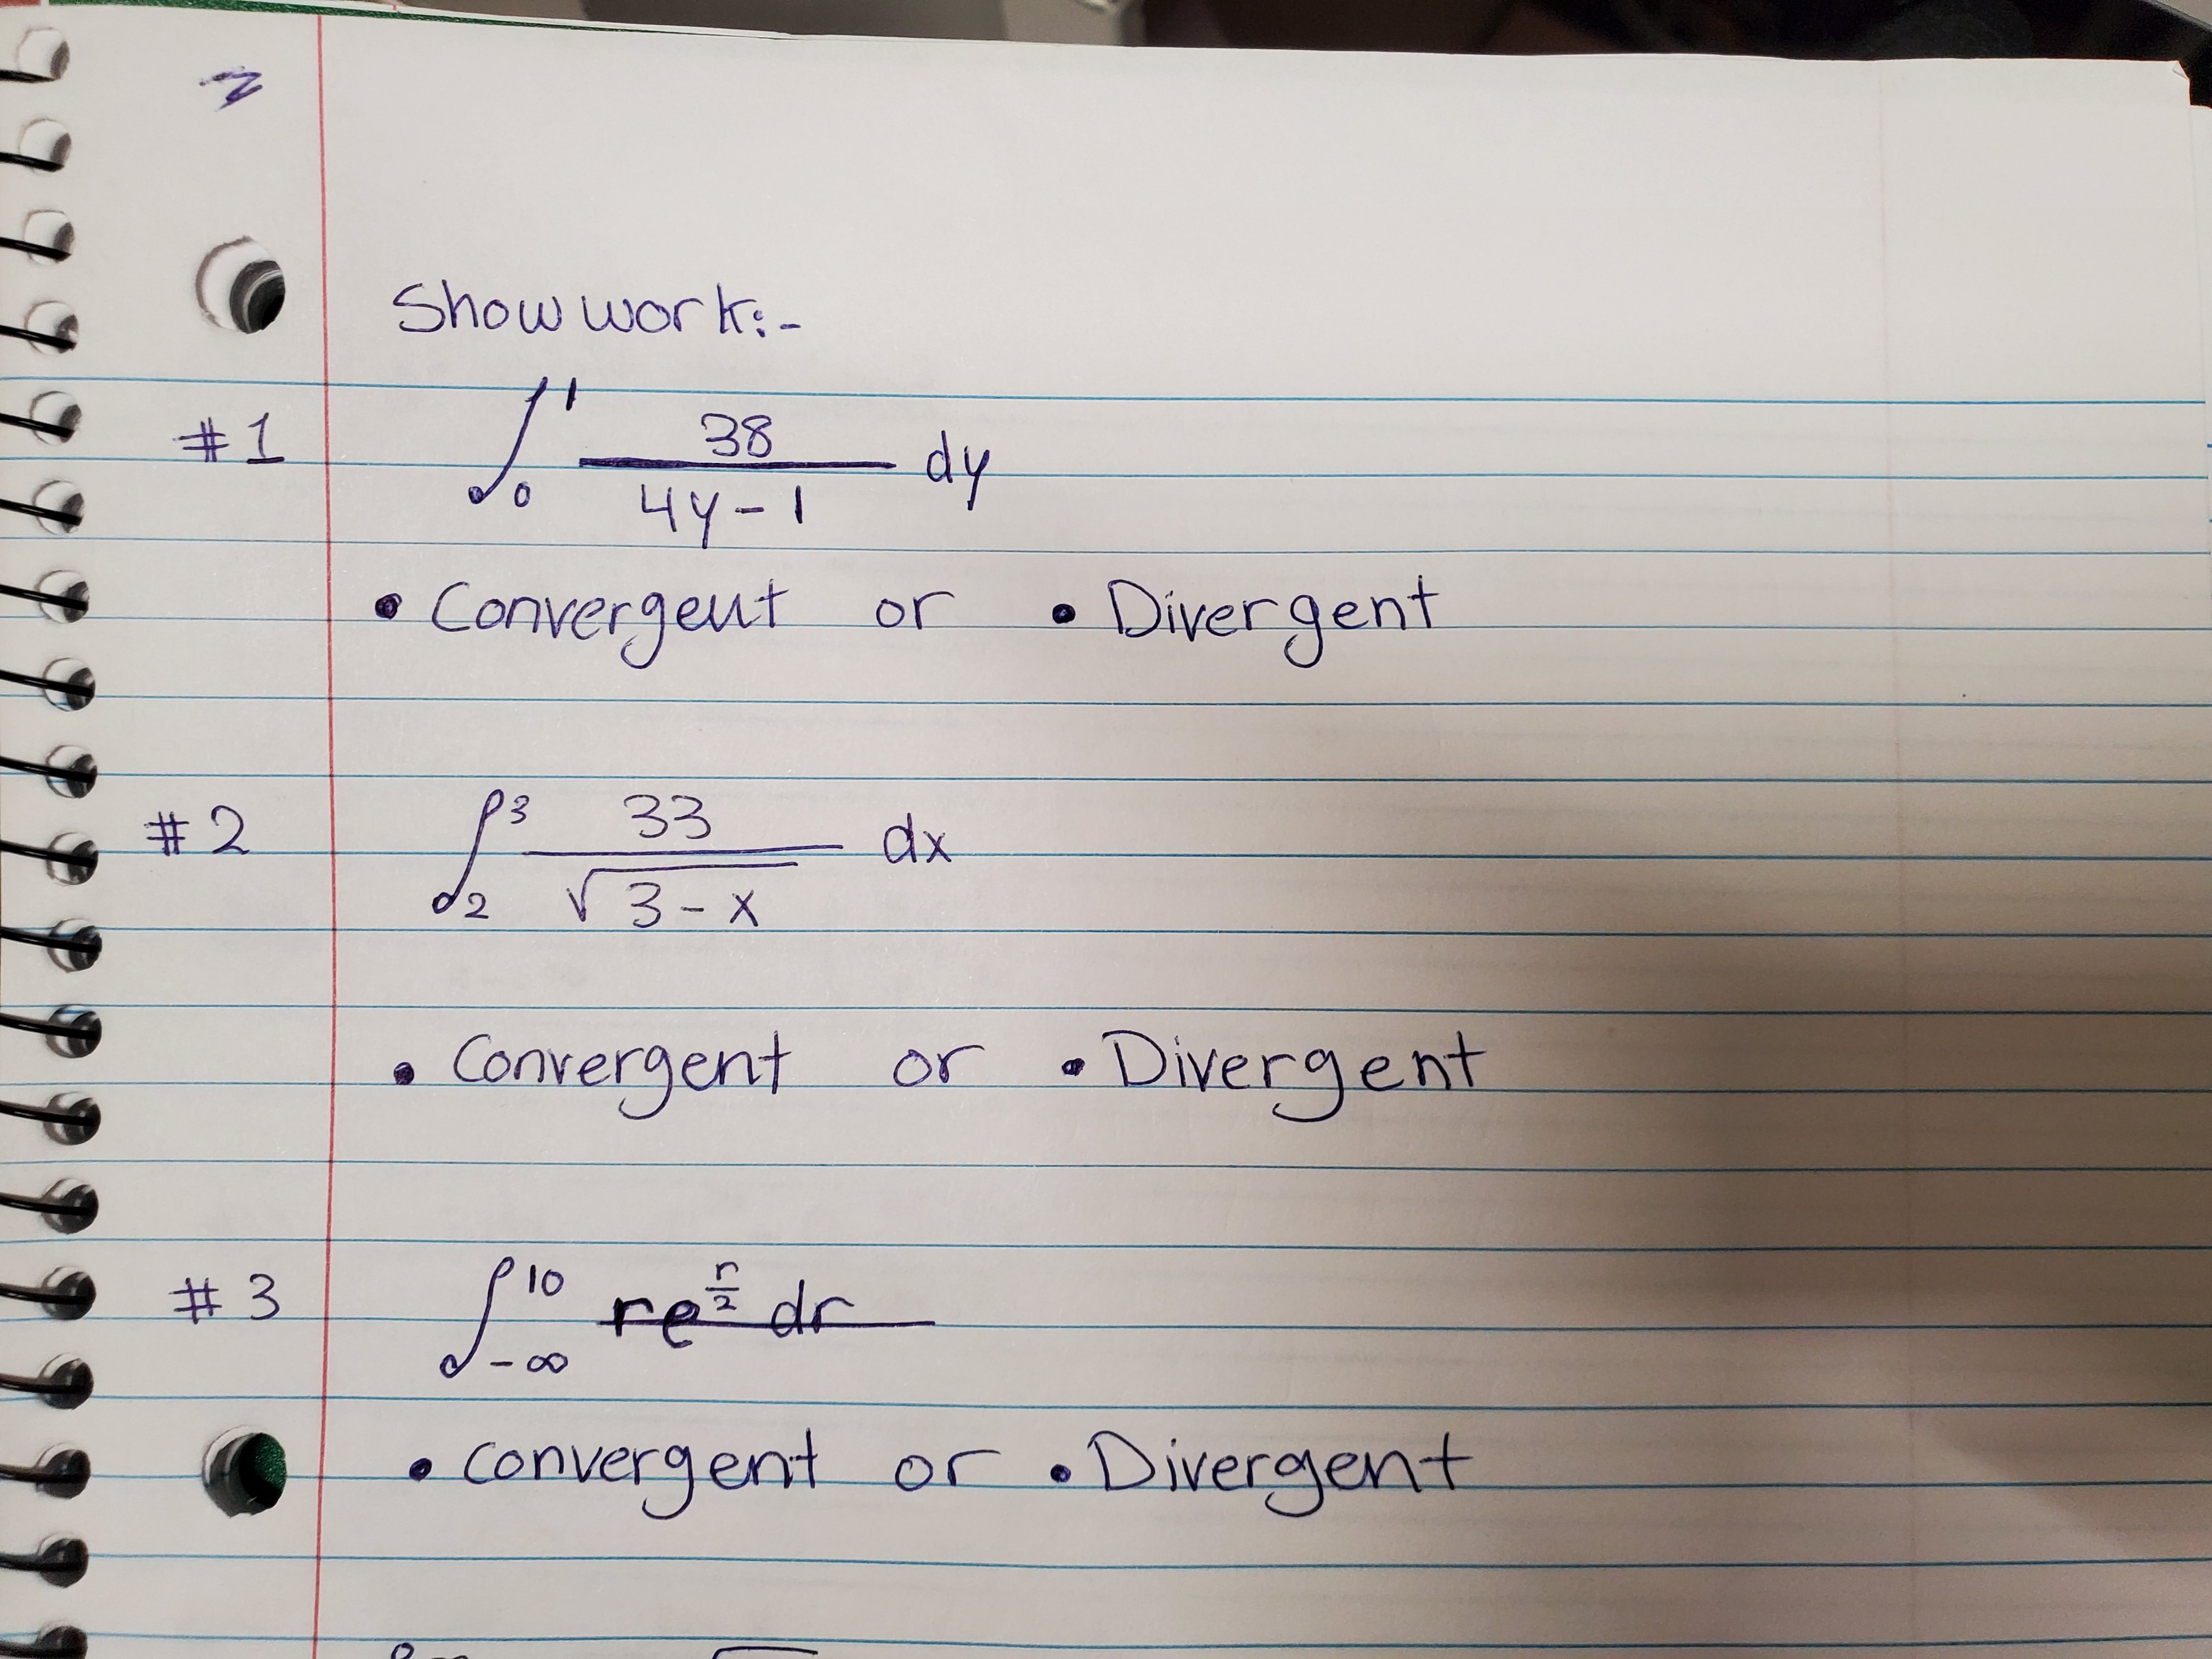 Show work:-
#1 ∫₀¹ 38/(4y-1) dy
• Convergeut or • Divergent
#2 ∫₂³ 33/√(3-x) dx
• Convergent or • Divergent
#3 ∫₋∞¹⁰ re^(r/2) dr
• convergent or • Divergent